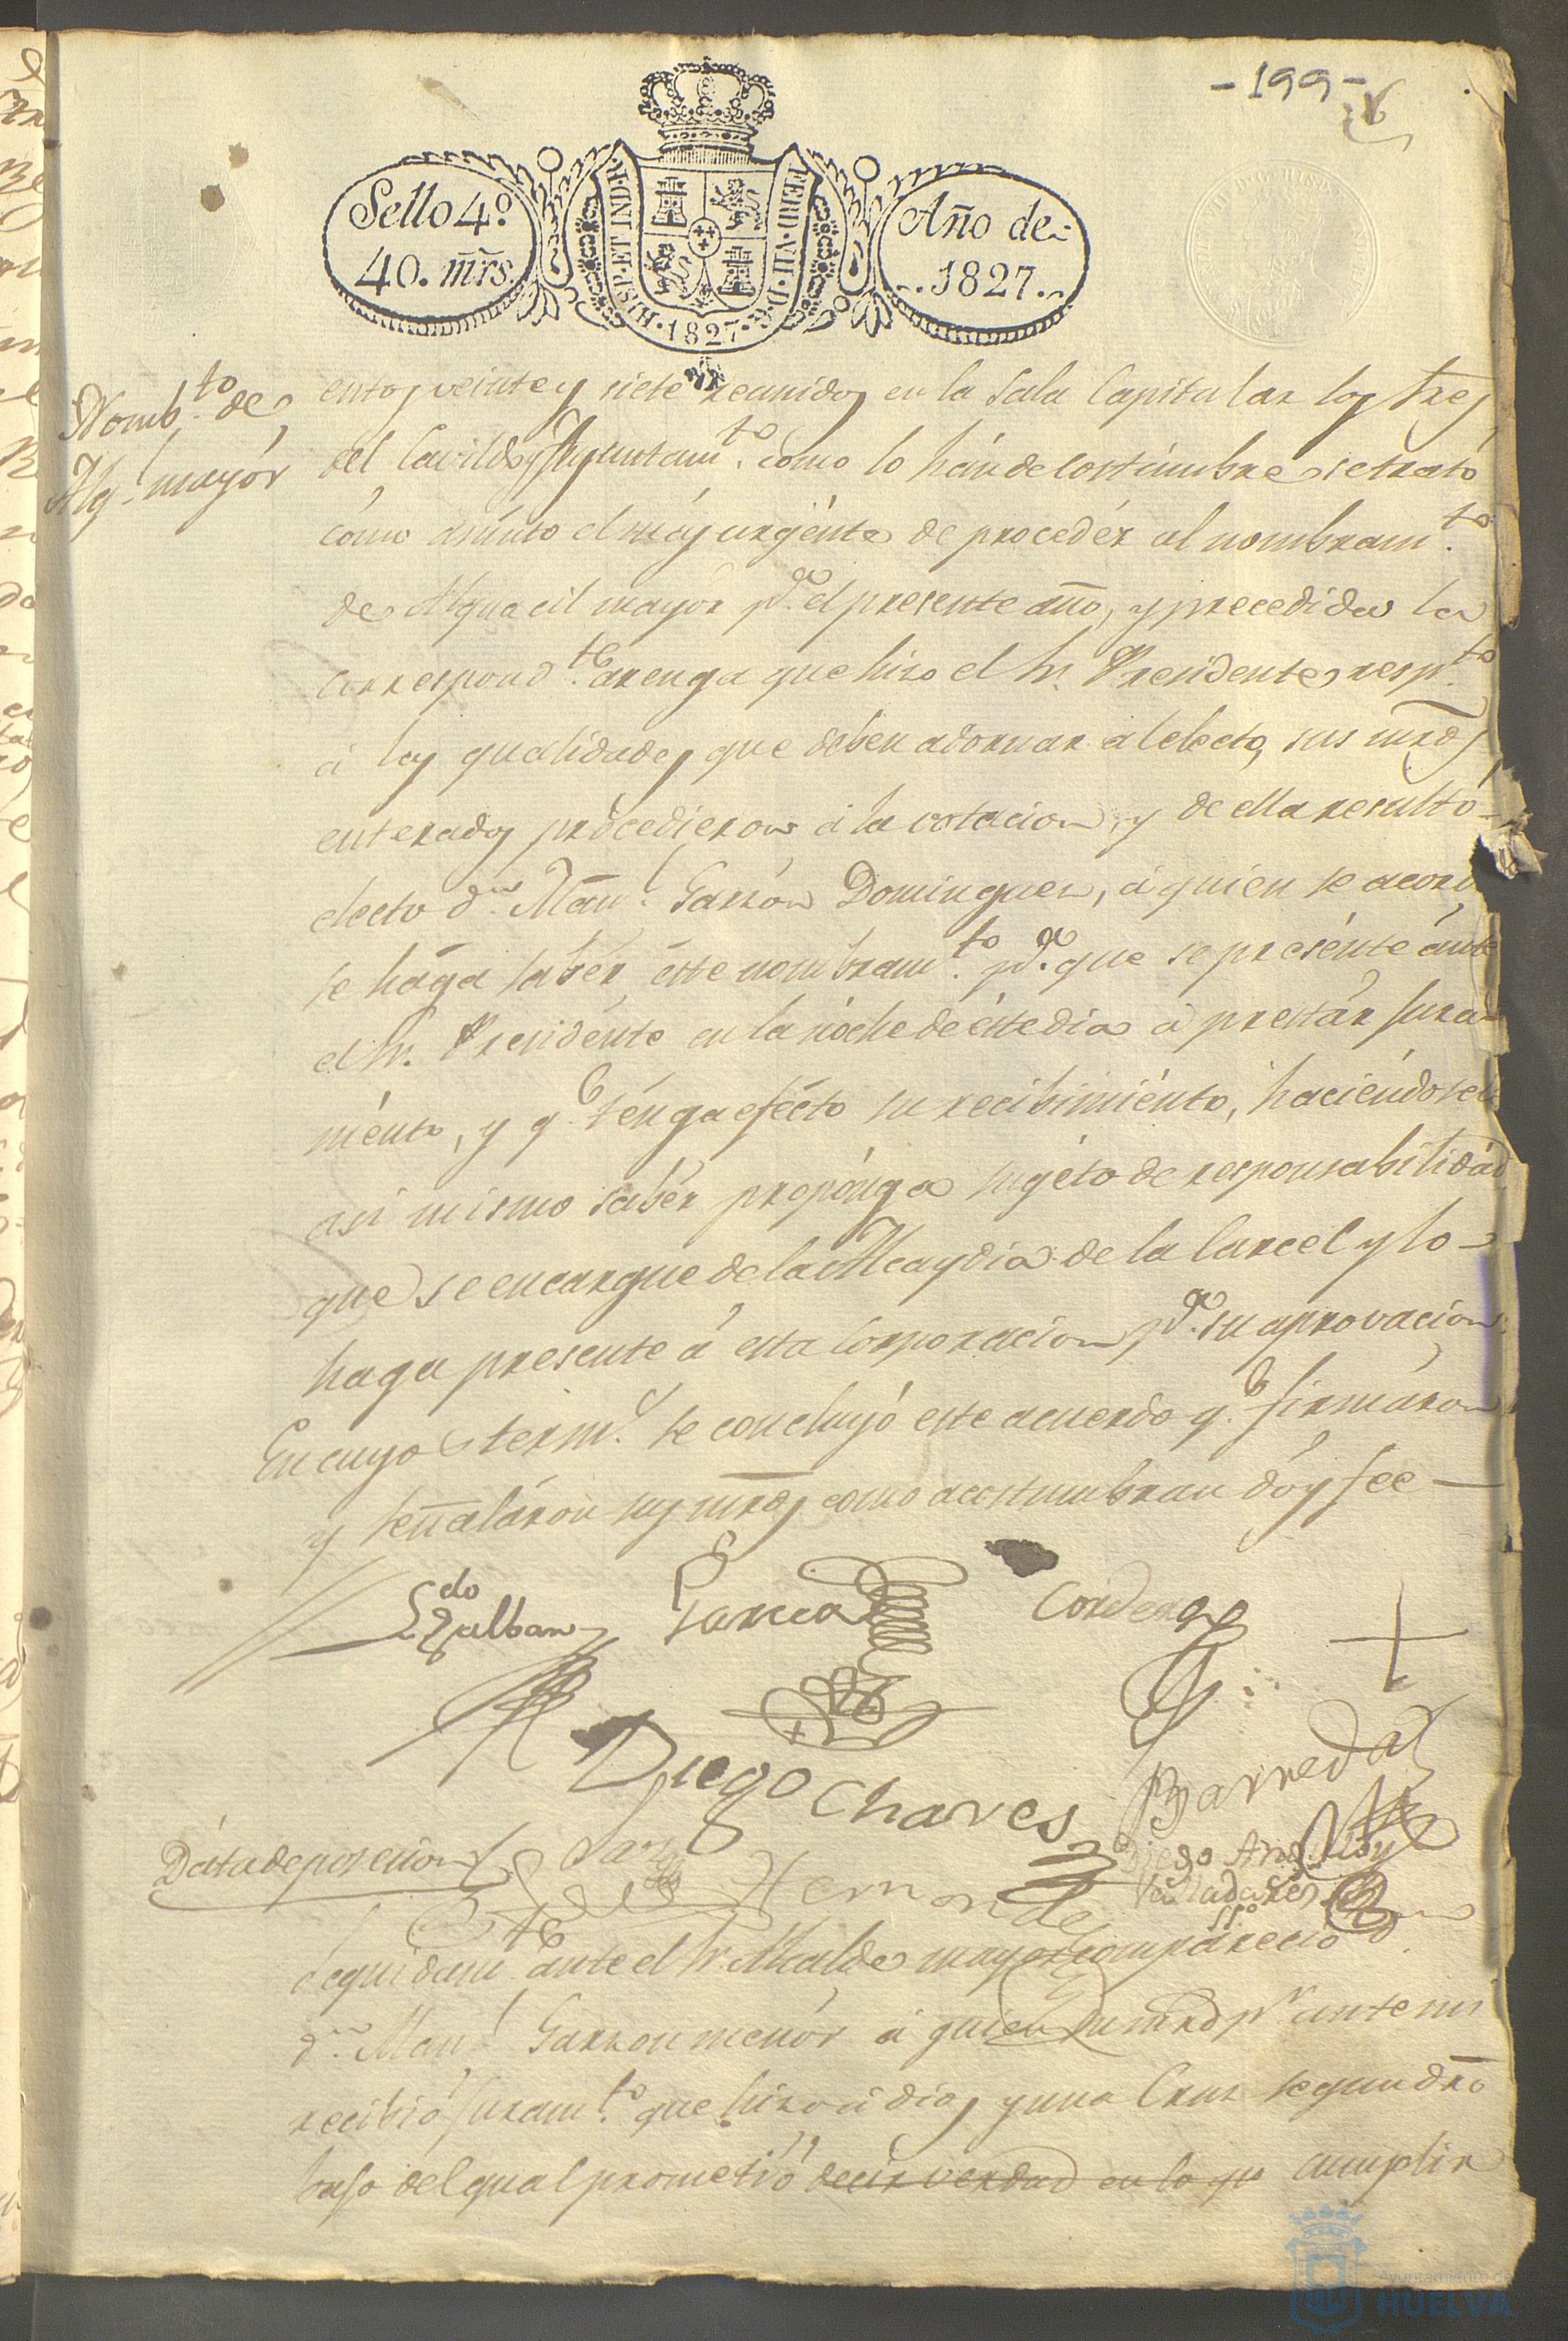 -199-
Sello 4º.
40. mrs.
HISP. ET IND. R.
FERD. VII. D. G.
·1827·
Año de
1827.
Nomb.to de
Alg.l mayór
entos veinte y siete reunidos en la Sala Capitular los Sres
del Cavildo y Ayuntam.to como lo hán de costúmbre se trató
cómo asúnto el mas urgénte de procedér al nombram.to
de Alguacil mayor p.a el presente año, y precedida la
correspond.te arenga que hizo el Sr. Presidente resp.to
á las qualidades que deben adornar al electo, sus mrds
enterados procedieron á la votacion, y de ella resultó
electo dn. Man.l Garzón Dominguez, á quien se acord
se hága sabér éste nombram.to p.a que se presénte ánte
el Sr. Presidénte en la nóche de éste dia á prestár jura
ménto, y q.e ténga efécto su recibimiénto, haciéndosele
asi mismo sabér propónga sugéto de responsabilidád
que se encargue de la Alcaydia de la Carcel y lo
haga presente á esta Corporacion p.a su aprovacion.
En cuyo term.o se concluyó este acuerdo q.e firmáron
y señaláron sus mrds como acostumbran dóy fee
Ldo Galban
Garcia
Cordero
Diego Chaves
Barreda
Hernande
Diego Ant.
Valladares
ss.no
Dáta de posesion
Seguidam.te ánte el Sr. Alcalde mayor compáreció
dn. Man.l Garzon menór á quien su mrd p.r ante mi
recibió juram.to que hizo á dios y una Cruz segun dro
bajo del qual prometió decir verdad en lo qe cumplir
Ayuntamiento de
HUELVA